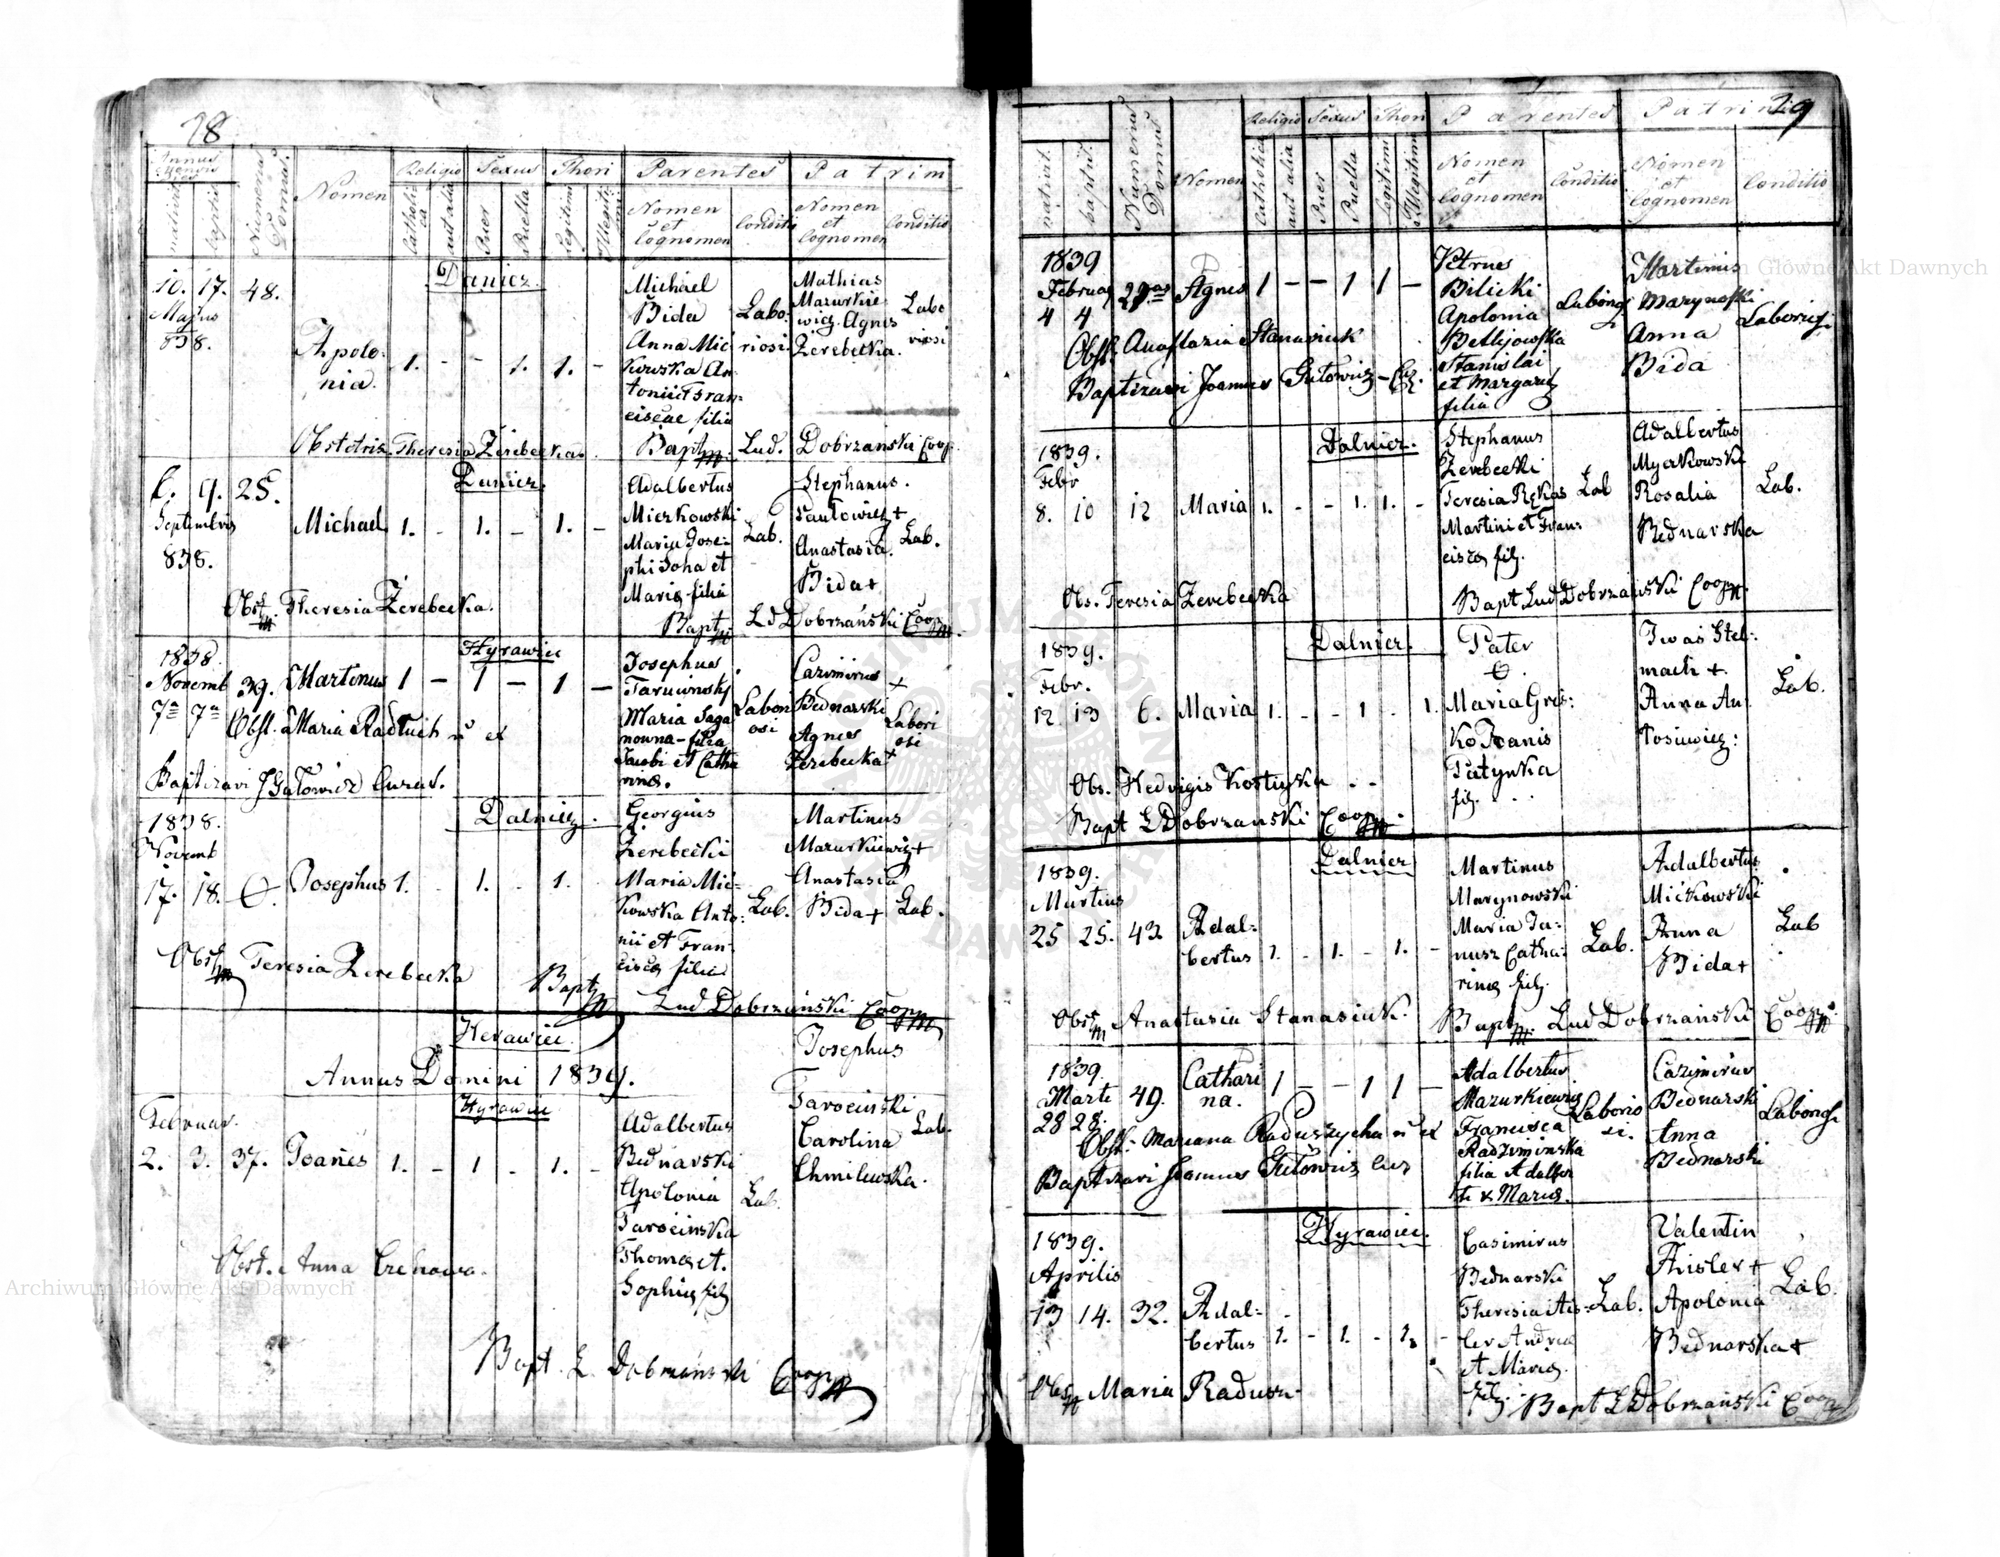 28
Annus Mensis Dies
natiunt.
baptis.
Numerus Domus
Nomen
Religio
Catholica
aut alia
Sexus
Puer
Puella
Thori
Legitimi
Illegitimi
Parentes
Nomen et Cognomen
Conditio
Patrim
Nomen et Cognomen
Conditio
Danicz
10. 17. 48.
Majus
838.
Apolo-
nia.
1. - - 1. 1. -
Michael
Bida
Anna Mic
kowska An-
tonii et Fran-
ciscae filia
Labo-
riosi.
Mathias
Mazurkie
wicz. Agnes
Zerebecka.
Labo
riosi
Obstetrix. Theresia Zerebecka
Bapt. Lud. Dobrzański Coop.
9. 25.
Septembris
838.
Michael 1. - 1. - 1. -
Adalbertus
Mierkowski
Maria Jose-
phi Soha et
Mariae filia
Lab.
Stephanus.
Anastasia.
Bida +
Lab.
Obst. Theresia Zerebecka.
Bapt. Ld Dobrzański Coop.
1838.
Hyrawiec
Novemb 39. Martinus 1 - 1 - 1 -
7a 7a
Obst. Maria Raduch
Josephus
Maria Saga
nowna - filia
Jacobi et Catha
rinae.
Labori
osi
Cazimirus +
Bednarski
Agnes
Zerebecka +
Labori
osi
Baptizavi J Gutowicz Curat.
1838.
Dalnicz.
Novemb
17. 18. Josephus 1. - 1. - 1.
Georgius
Zerebecki
Maria Mic-
kowska Anto-
nii et Fran-
ciscae filia
Lab.
Martinus
Mazurkiewicz +
Anastasia
Bida +
Lab.
Obst. Teresia Zerebecka
Bapt.
Lud Dobrzański Coop
Herawiec.
Annus Domini 1839.
Hyrawiec
Februar.
2. 3. 37. Joanes 1. - 1 - 1. -
Adalbertus
Bednarski
Apolonia
Tarocinska
Thomae et.
Sophiae filj
Lab.
Josephus
Tarocinski
Carolina
Chmilewska.
Lab.
Obst. Anna
Bapt. L Dobrzański Coop
29
natiunt.
baptis.
Numerus Domus
Nomen
Religio
Catholica
aut alia
Sexus
Puer
Puella
Thori
Legitimi
Illegitimi
Parentes
Nomen et Cognomen
Conditio
Patrini
Nomen et Cognomen
Conditio
1839
Februar
4 4
Agnes 1 - - 1 1 -
Petrus
Bilicki
Apolonia
Stanislai
et Margareth
filia
Martinus
Marynoski
Anna
Bida
Obst. Anastazia Stanasiuk
Baptizavi Joannes Gutowicz - Cur.
1839.
Dalnicz.
Febr
8. 10 12 Maria 1. - - 1. 1. -
Stephanus
Zerebecki
Teresia Rękas
Martini et Fran-
ciscae filj.
Lab
Adalbertus
Rosalia
Bednarska
Lab.
Obs. Teresia Zerebecka
Bapt Lud Dobrzański Coop.
1839.
Dalnicz.
Febr.
12. 13 6. Maria 1. - - 1 - 1.
Pater
Maria Gres-
ko Joanis
filj.
Iwaś Stel-
mach +
Anna An-
tosiewicz:
Lab.
Obs. Hedvigis
Bapt L Dobrzański Coop.
1839.
Dalnicz
Martius
25 25. 43. Adal-
bertus 1. - 1. - 1. -
Martinus
Marynowski
Maria Ja-
nusz Catha-
rinae filj.
Lab.
Adalbertus
Mićkowski
Anna
Bida +
Lab
Obst. Anastasia Stanasiuk.
Bapt. Lud Dobrzański Coop.
1839.
Marti 49. Cathari
na. 1 - - 1 1 -
28 28.
Adalbertus
Mazurkiewicz
Francisca
Radziminska
filia Adalber
ti & Mariae.
Laborio
si.
Cazimirus
Bednarski
Anna
Bednarski
Obst. Mariana Raduszycha
Baptizavi Joannes Gutowicz Cur
1839.
Hyrawiec.
Aprilis
13 14. 32. Adal-
bertus 1. - 1. - 1. -
Casimirus
Bednarski
Theresia Ais-
ler Andreae
et Mariae
filj.
Lab.
Valentin
Aisler +
Apolonia
Bednarska +
Lab.
Obst Maria Radusz
Bapt L Dobrzański Coop
Archiwum Główne Akt Dawnych
Archiwum Główne Akt Dawnych
ARCHIWUM GŁÓWNE AKT DAWNYCH